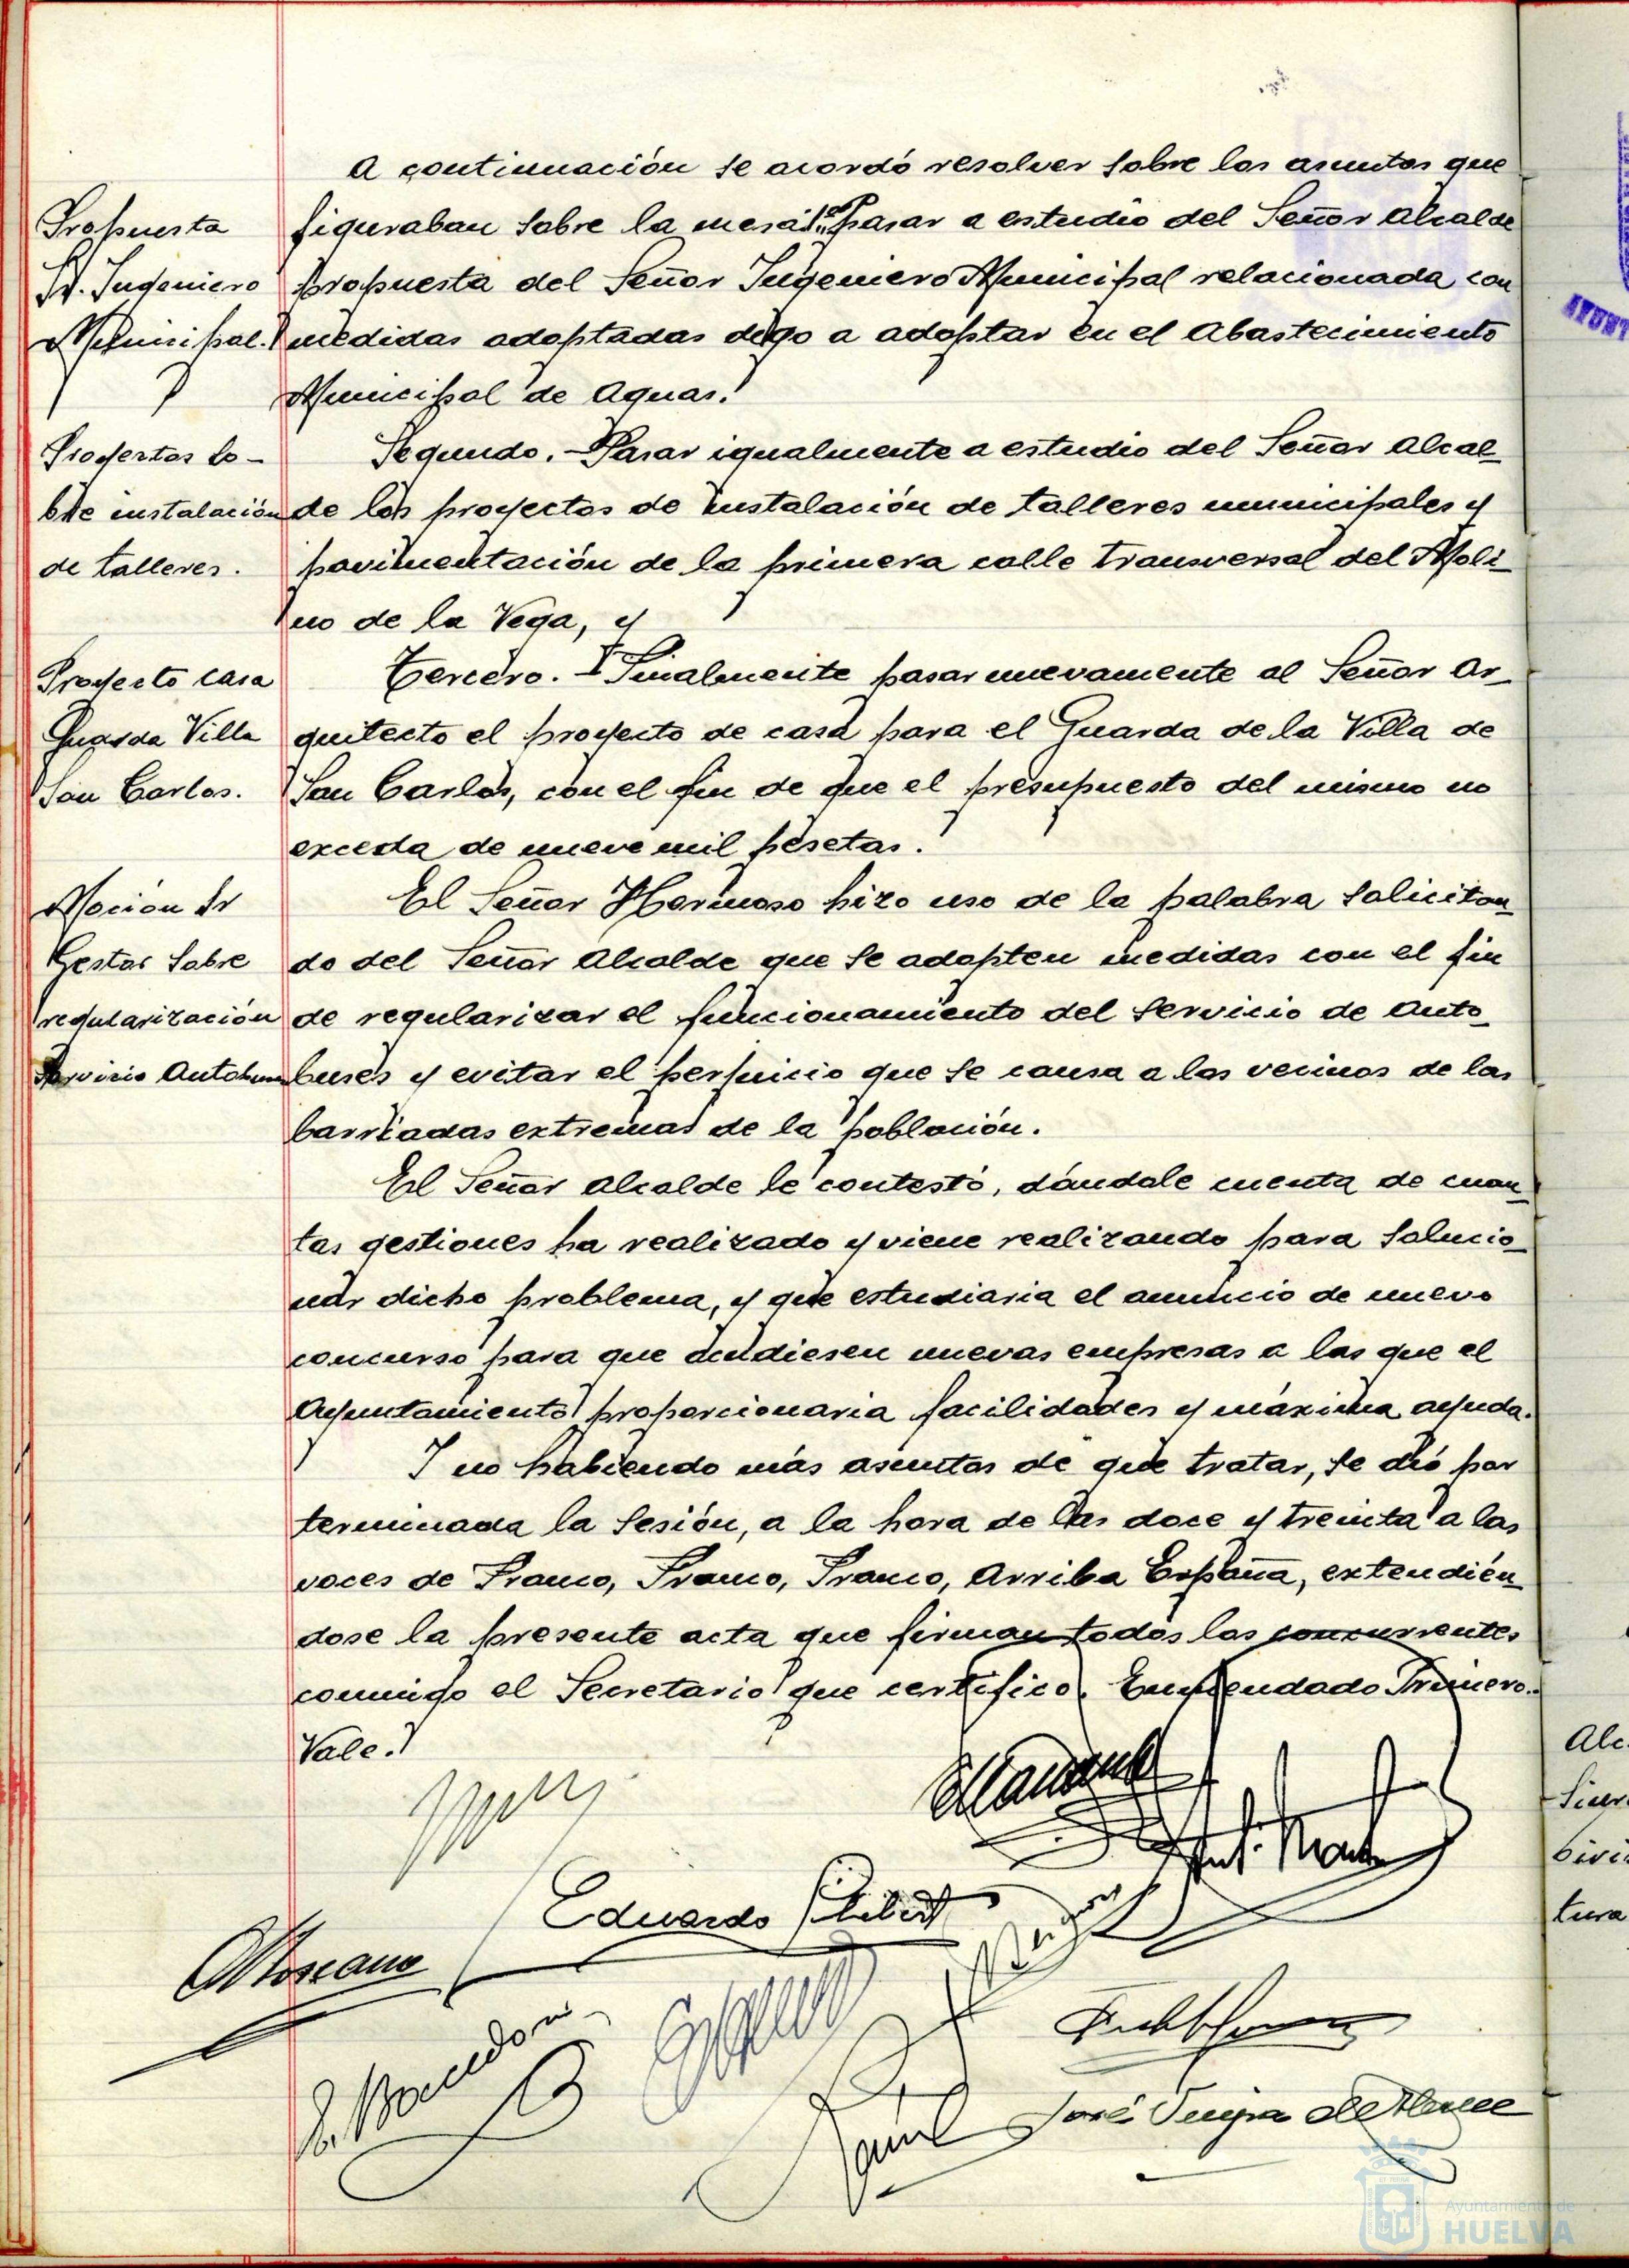 A continuación se acordó resolver sobre los asuntos que
Propuesta
Sr. Ingeniero
Municipal.
figuraban sobre la mesa: 1º Pasar a estudio del Señor Alcalde
propuesta del Señor Ingeniero Municipal relacionada con
medidas adoptadas digo a adoptar en el Abastecimiento
Municipal de Aguas.
Proyectos so-
bre instalación
de talleres.
Segundo. - Pasar igualmente a estudio del Señor Alcal-
de los proyectos de instalación de talleres municipales y
pavimentación de la primera calle transversal del Moli-
no de la Vega, y
Proyecto casa
Guarda Villa
San Carlos.
Tercero. - Finalmente pasar nuevamente al Señor Ar-
quitecto el proyecto de casa para el Guarda de la Villa de
San Carlos, con el fin de que el presupuesto del mismo no
exceda de nueve mil pesetas.
Moción Sr
Gestor sobre
regularización
Servicio Autobuses
El Señor Hermoso hizo uso de la palabra solicitan-
do del Señor Alcalde que se adopten medidas con el fin
de regularizar el funcionamiento del servicio de Auto-
buses y evitar el perjuicio que se causa a los vecinos de las
barriadas extremas de la población.
El Señor Alcalde le contestó, dándole cuenta de cuan-
tas gestiones ha realizado y viene realizando para solucio-
nar dicho problema, y que estudiaria el anuncio de nuevo
concurso para que acudiesen nuevas empresas a las que el
Ayuntamiento proporcionaria facilidades y máxima ayuda.
Y no habiendo más asuntos de que tratar, se dió por
terminada la sesión, a la hora de las doce y treinta a las
voces de Franco, Franco, Franco, Arriba España, extendién-
dose la presente acta que firman todos los concurrentes
conmigo el Secretario que certifico. Enmendado Primero.
Vale.
Eduardo
José de
Alc
tura
Ayuntamiento de
HUELVA